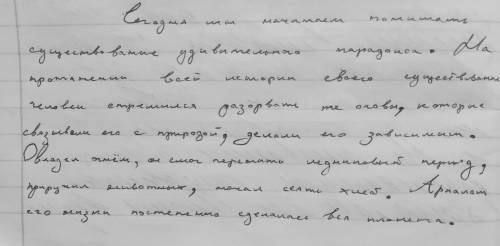 Сегодня мы начинаем понимать
существование удивительного парадокса. На
протяжении всей истории своего существования
человек стремился разорвать те оковы, которые
связывали его с природой, делали его зависимым.
Овладев огнём, он смог пережить ледниковый период,
приручил животных, начал сеять хлеб. Ареалом
его жизни постепенно сделалась вся планета.